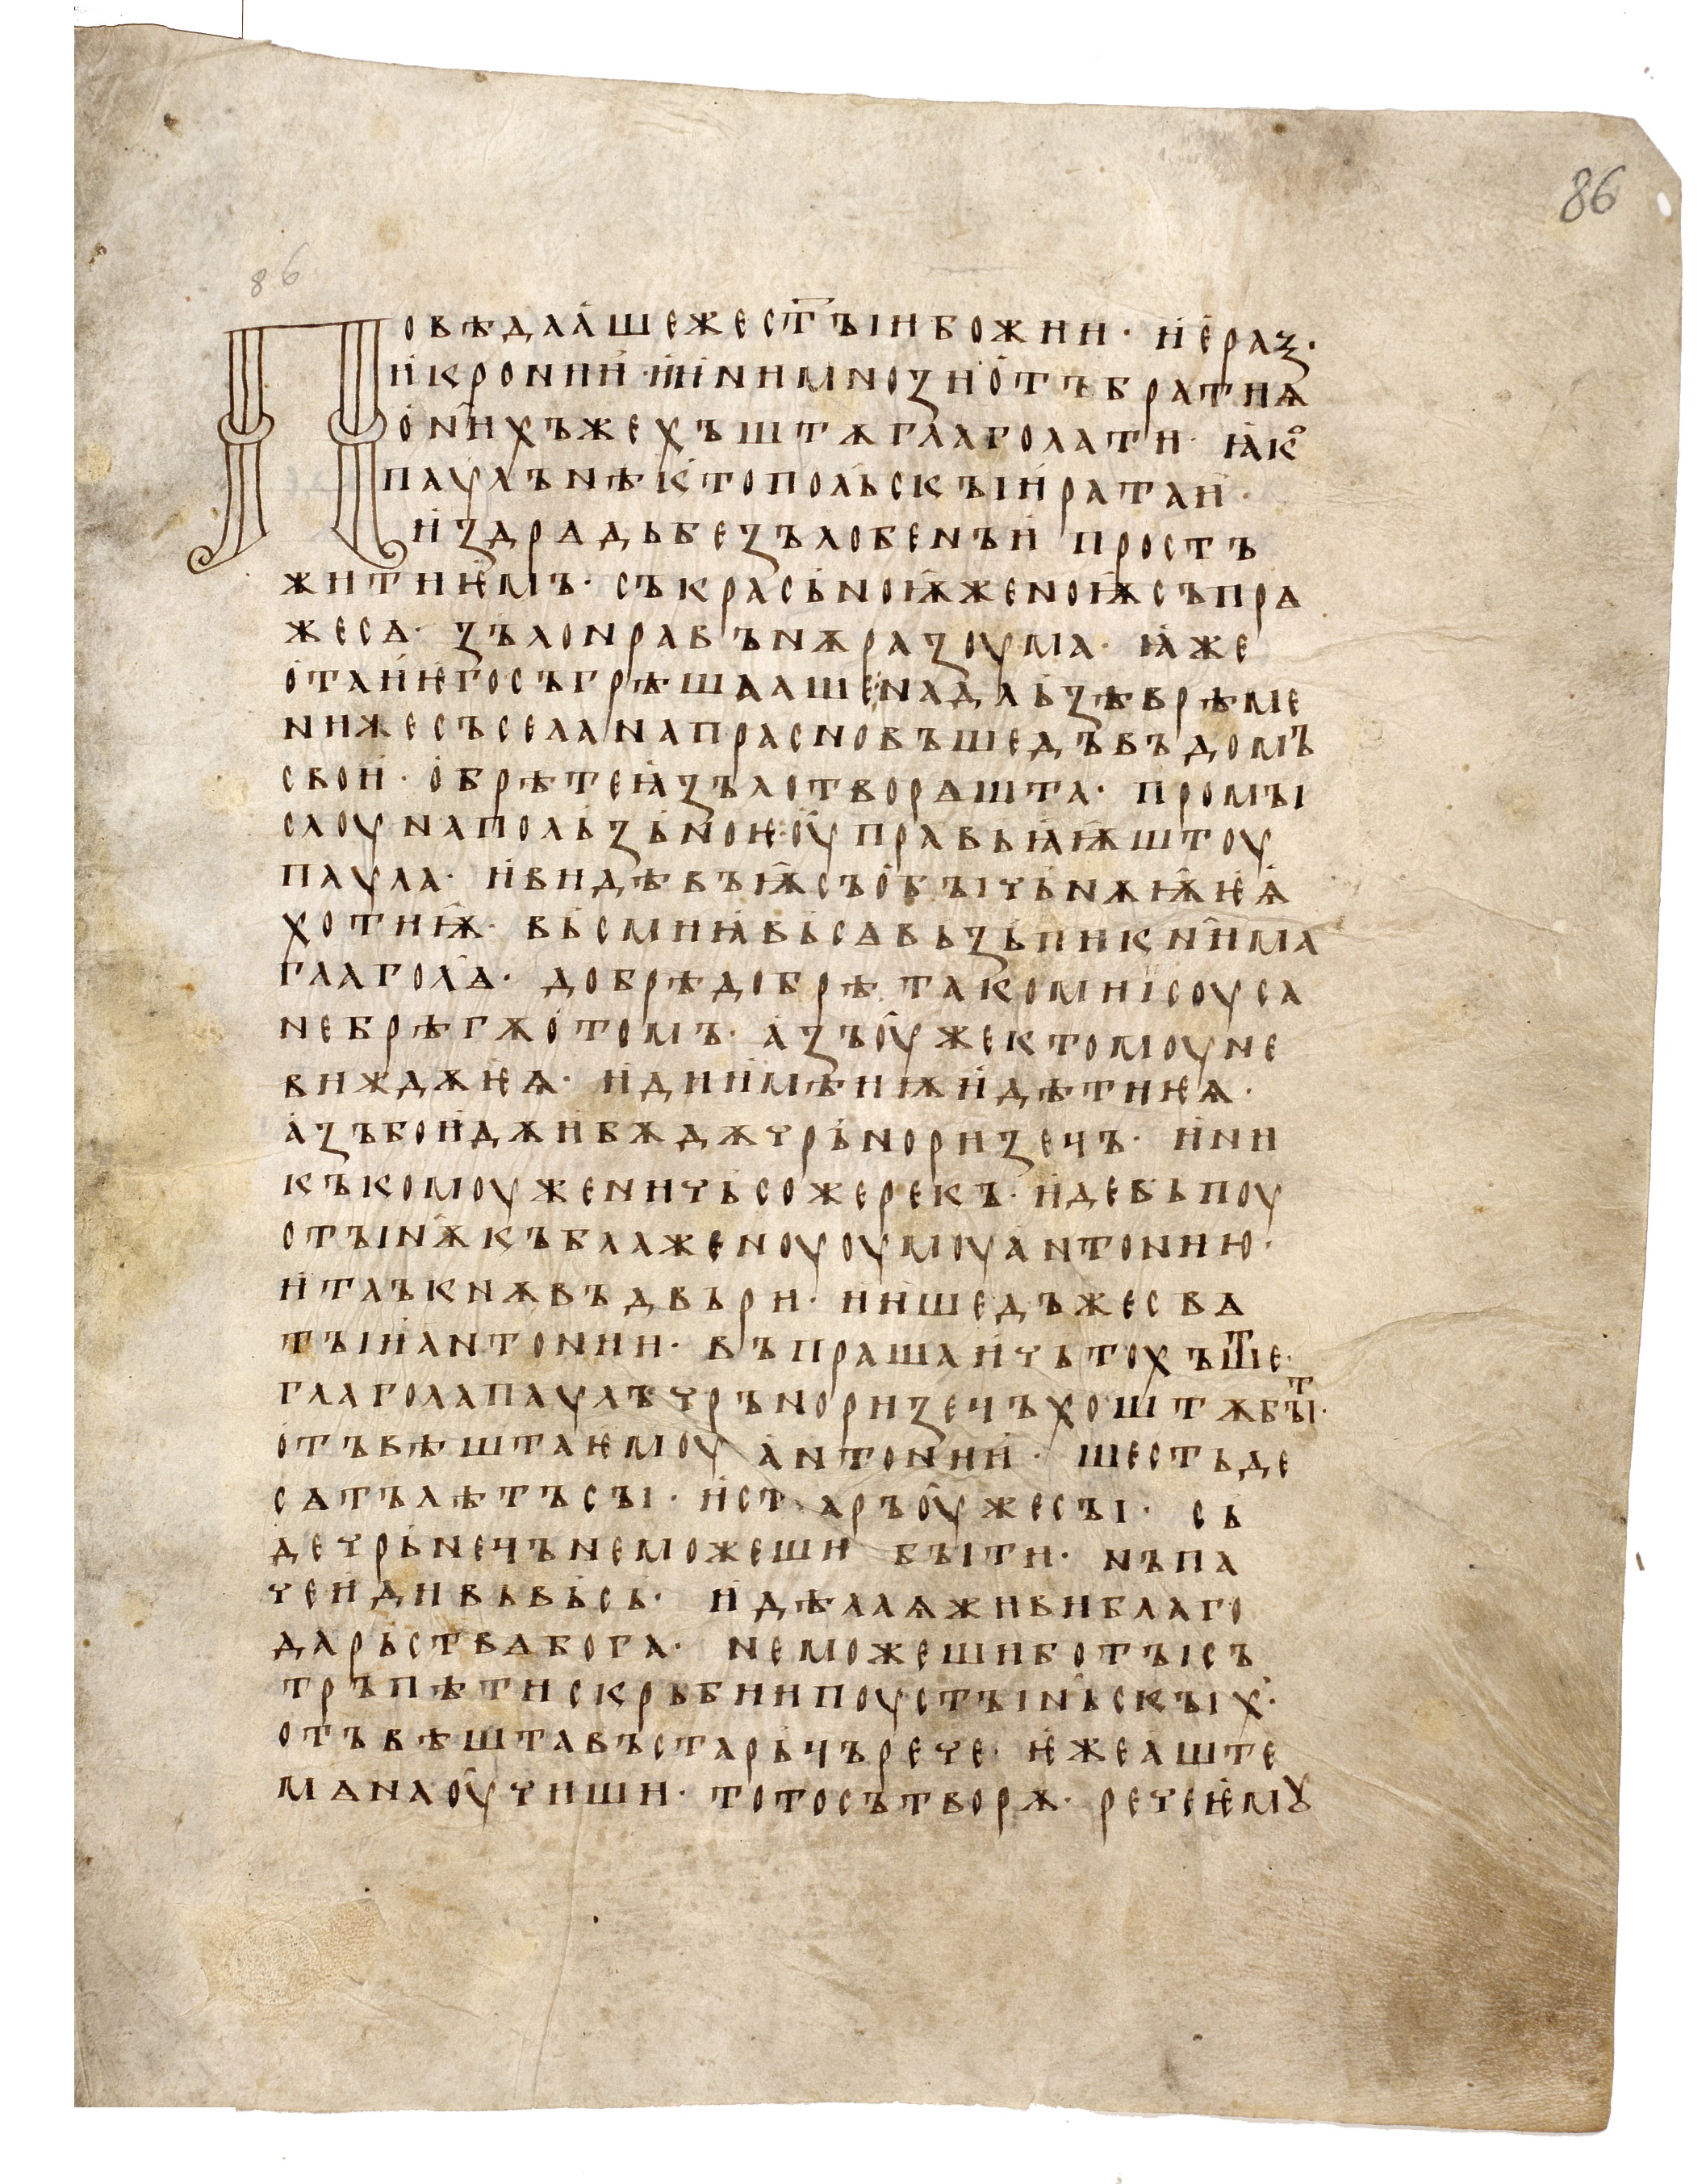 86
86
Повѣдаашежест҃ъінбожии· иѥраз·
икронии· ініи мнозиотъбратиѩ
онихъжехъштѫглаголати· ꙗко
паулънѣктопольскъіиратаи·
издрадьбезълобенъи простъ
житиѥмъ· съкрасьноѭженоѭсъпрѧ
жесѧ· зълонравънѫразоума· ꙗже
отаиѥгосъгрѣшаашенадльзѣврѣме
нижесъселанапрасновъшедъвъдомъ
свои· обрѣтеꙗзълотворѧшта· промъі
слоунапользьноѥоуправьꙗѭштоу
паула· ивидѣвъѭсъобъічьнѫѭѥѩ
хотиѭ· вьсмиꙗвьсѧвьзъпикнима
глаголѧ· добрѣдобрѣ такомиісоуса
небрѣгѫотомъ· азъоужектомоуне
виждѫѥѩ· идииимѣиѭидѣтиѥѩ·
азъбоидѫивѫдѫчрьноризецъ· ини
къкомоуженичьсожерекъ· идевьпоу
отъінѫкъблаженоуоумоуантонию·
итлъкнѫвъдвьри· иишедъжесвѧ
тъіиантонии· въпрашаичьтохъште·
глаголапаулъчръноризецъхоштѫбъіт·
отъвѣштаѥмоу антонии· шестьде
сѧтълѣтъсъі· истаръоужесъі· сь
дечрьнецънеможеши бъіти· нъпа
чеидивьвьсь· идѣлаѩживиблаго
дарьствѧбога· неможешиботъісъ
тръпѣтискръбиипоустъіньскъіх·
отъвѣштавъстарьцърече· ѥжеаште
мѧнаоучиши· тотосътворѭ· речеѥмꙋ